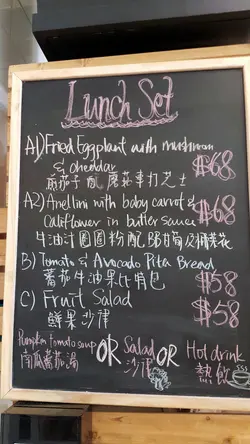 Lunch Set
A1) Fried Eggplant with mushroom
& cheddar $68
煎茄子配蘑菇車打芝士
A2) Anellini with baby carrot &
Califlower in butter sauce $68
牛油汁圈圈粉配甘筍及椰菜花
B) Tomato & Avocado Pita Bread $58
蕃茄牛油果比特包
C) Fruit Salad $58
鮮果沙律
Pumpkin tomato soup OR Salad OR Hot drink
南瓜蕃茄湯 沙律 熱飲